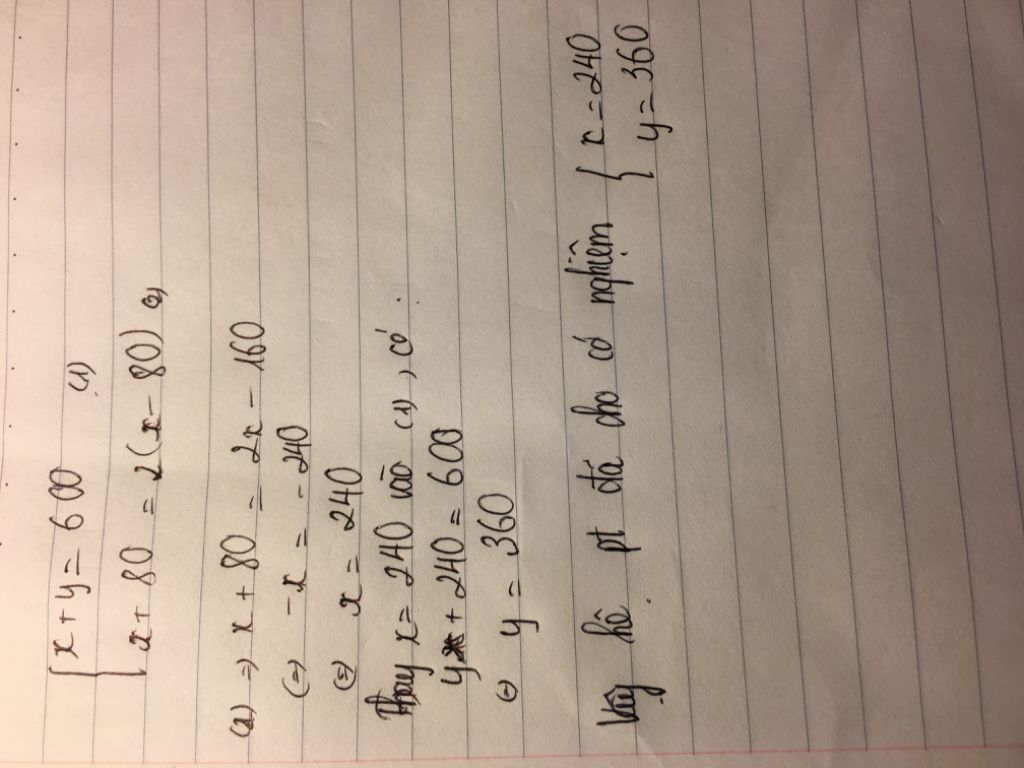 { x + y = 600 (1)
x + 80 = 2(x - 80) (2)
(2) => x + 80 = 2x - 160
(=) - x = - 240
(=) x = 240
Thay x = 240 vào (1), có:
y + 240 = 600
(=) y = 360
Vậy hê pt đã cho có nghiệm { x = 240
y = 360